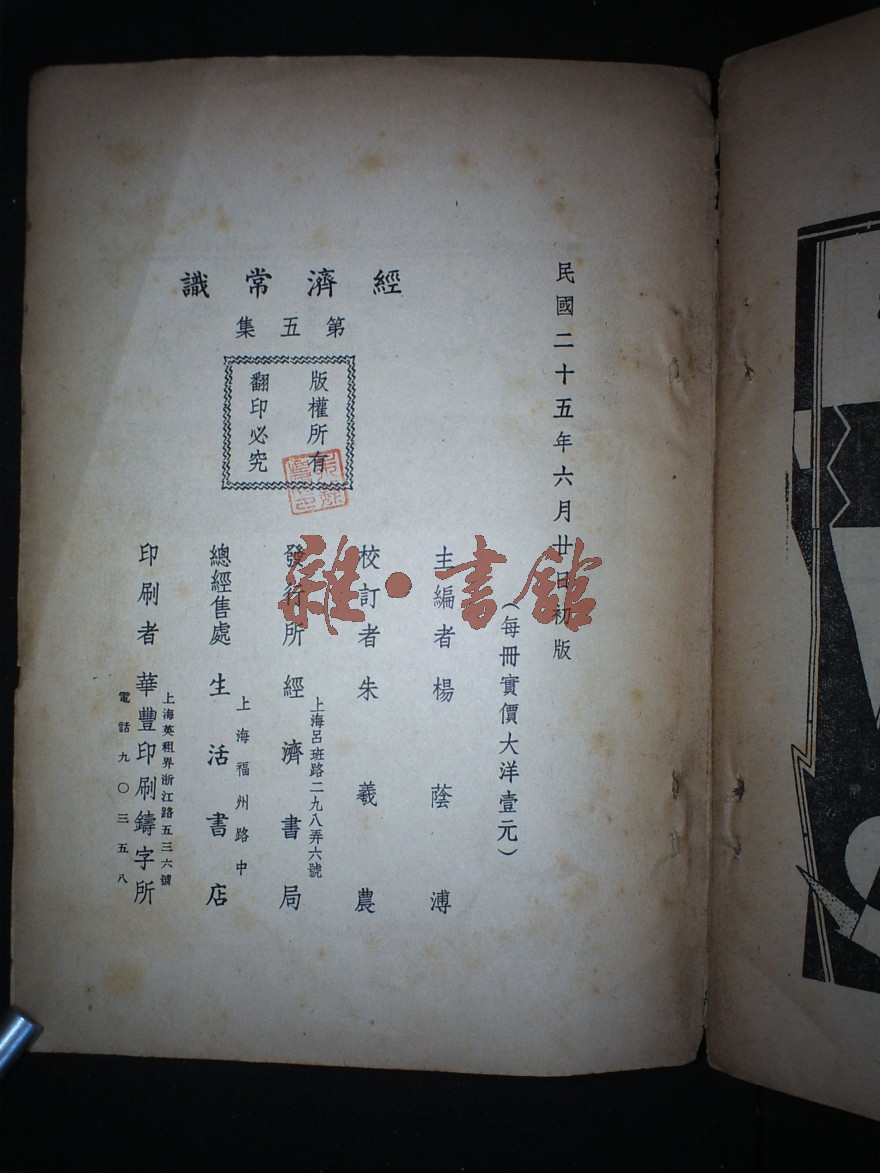 民國二十五年六月廿日初版
(每冊實價大洋壹元)
經濟常識
第五集
版權所有
翻印必究
主編者 楊蔭溥
校訂者 朱羲農
發行所 經濟書局
上海呂班路二九八弄六號
總經售處 生活書店
上海福州路中
印刷者 華豐印刷鑄字所
上海英租界浙江路五三六號
電話九〇三五八
雜·書館